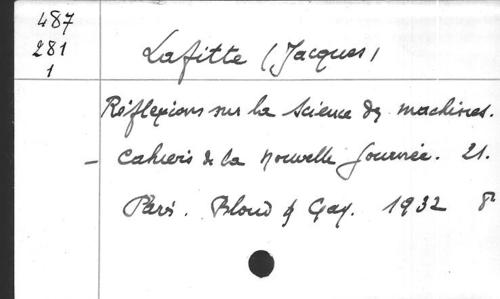 487
281
1
Lafitte (Jacques)
Réflexions sur la science des machines.
- Cahiers de la Nouvelle Journée. 21.
Paris. Bloud & Gay. 1932 8°